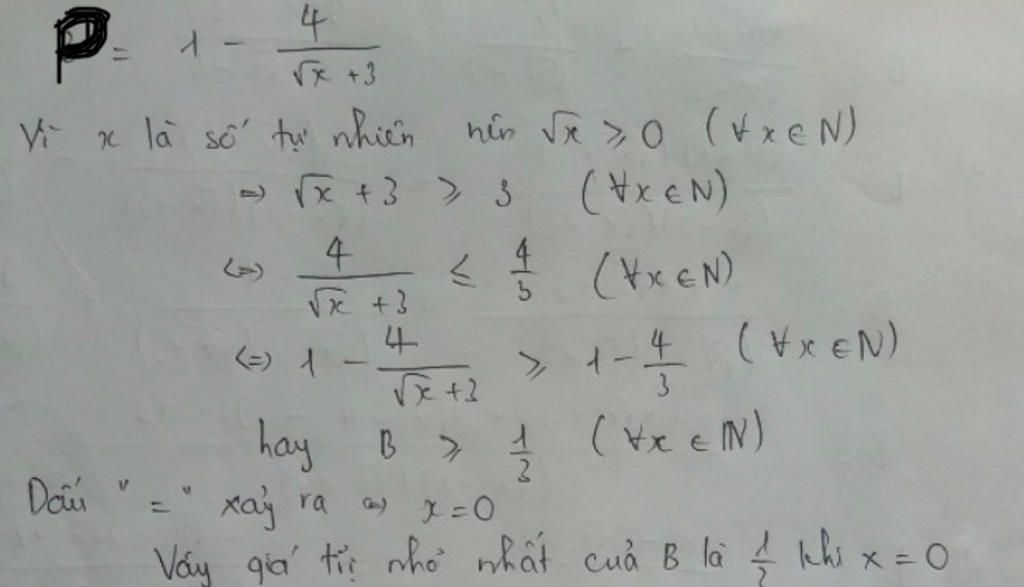 P = 1 - 4/(√x + 3)
Vì x là số tự nhiên nên √x ⩾ 0 (∀x∈N)
=> √x + 3 ⩾ 3 (∀x∈N)
<=> 4/(√x + 3) ≤ 4/3 (∀x∈N)
<=> 1 - 4/(√x + 3) ⩾ 1 - 4/3 (∀x∈N)
hay B ⩾ 1/3 (∀x∈N)
Dấu "=" xảy ra <=> x=0
Vậy giá trị nhỏ nhất của B là 1/3 khi x = 0